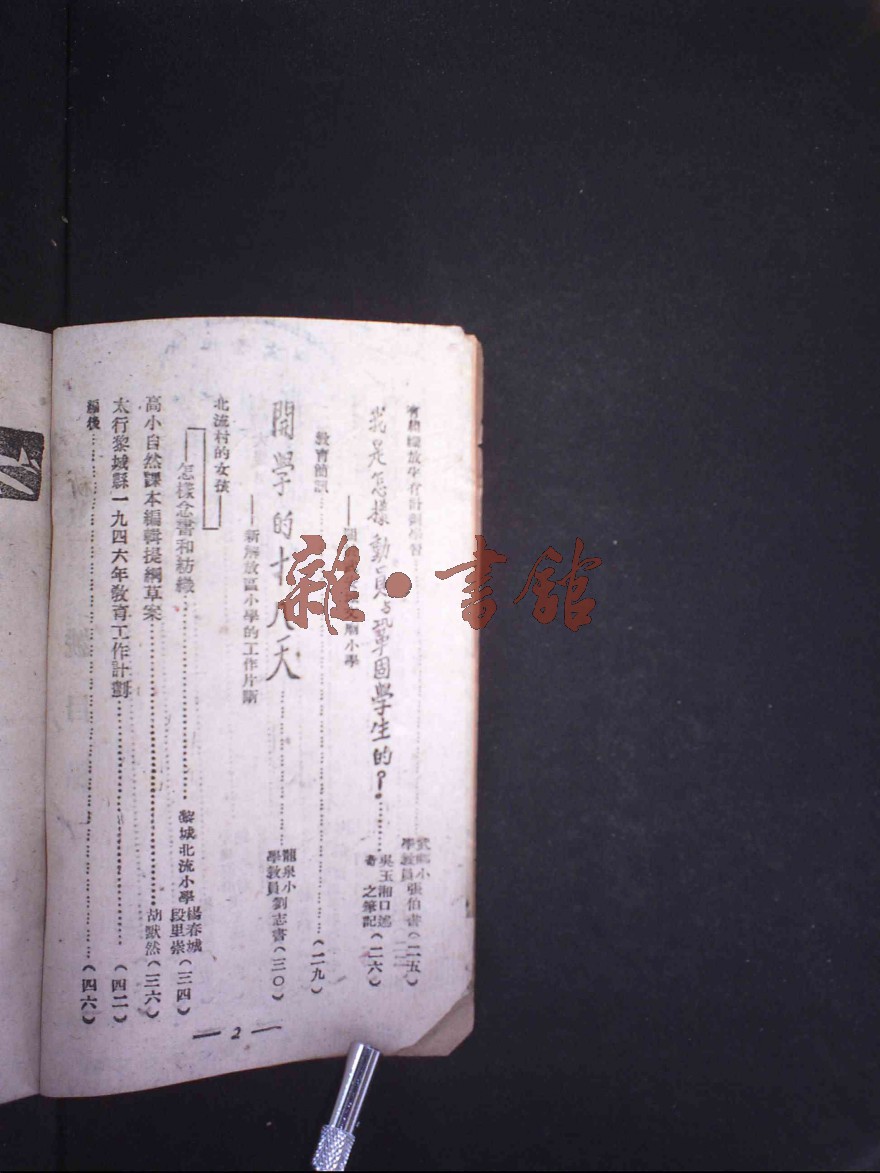 學習……武鄉小學教員張伯書（二五）
我是怎樣動員與鞏固學生的？……吳玉湘口述 之筆記（二六）
小學
教育簡訊……（二九）
開學的十八天……龍泉小學教員劉志書（三〇）
——新解放區小學的工作片斷
北流村的女孩——
——怎樣念書和紡織……黎城北流小學楊春城 段里崇（三四）
高小自然課本編輯提綱草案……胡默然（三六）
太行黎城縣一九四六年教育工作計劃……（四二）
編後……（四六）
— 2 —
雜·書館